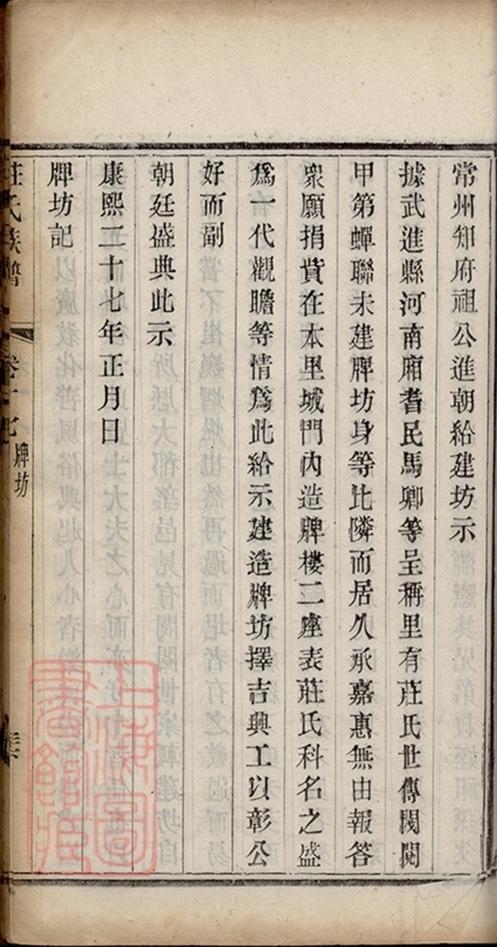 常州知府祖公進朝給建坊示
據武進縣河南廂耆民馬卿等呈稱里有莊氏世傳閥閱
甲第蟬聯未建牌坊身等比隣而居久承嘉惠無由報答
衆願捐貲在本里城門內造牌樓二座表莊氏科名之盛
爲一代觀瞻等情爲此給示建造牌坊擇吉興工以彰公
好而副
朝廷盛典此示
康熙二十七年正月日
牌坊記
莊氏族譜
牌坊
上海圖書館藏